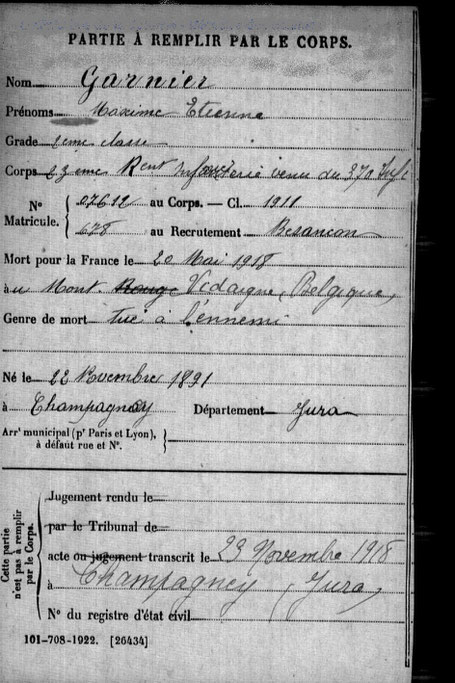 PARTIE À REMPLIR PAR LE CORPS.
Nom Garnier
Prénoms Maxime Etienne
Grade 2eme classe
Corps 23eme Rent Infanterie venu du 370 Infie
No Matricule. { 07612 au Corps. — Cl. 1911
678 au Recrutement Besançon
Mort pour la France le 20 Mai 1918
à u Mont Rouge Vidaigne, (Belgique,
Genre de mort tué à l'ennemi
Né le 22 Novembre 1891
à Champagney Département Jura
Arrt municipal (pr Paris et Lyon),
à défaut rue et No.
Cette partie n'est pas à remplir par le Corps.
Jugement rendu le
par le Tribunal de
acte ou jugement transcrit le 23 Novembre 1918
à Champagney (Jura)
No du registre d'état civil
101-708-1922. [26434]